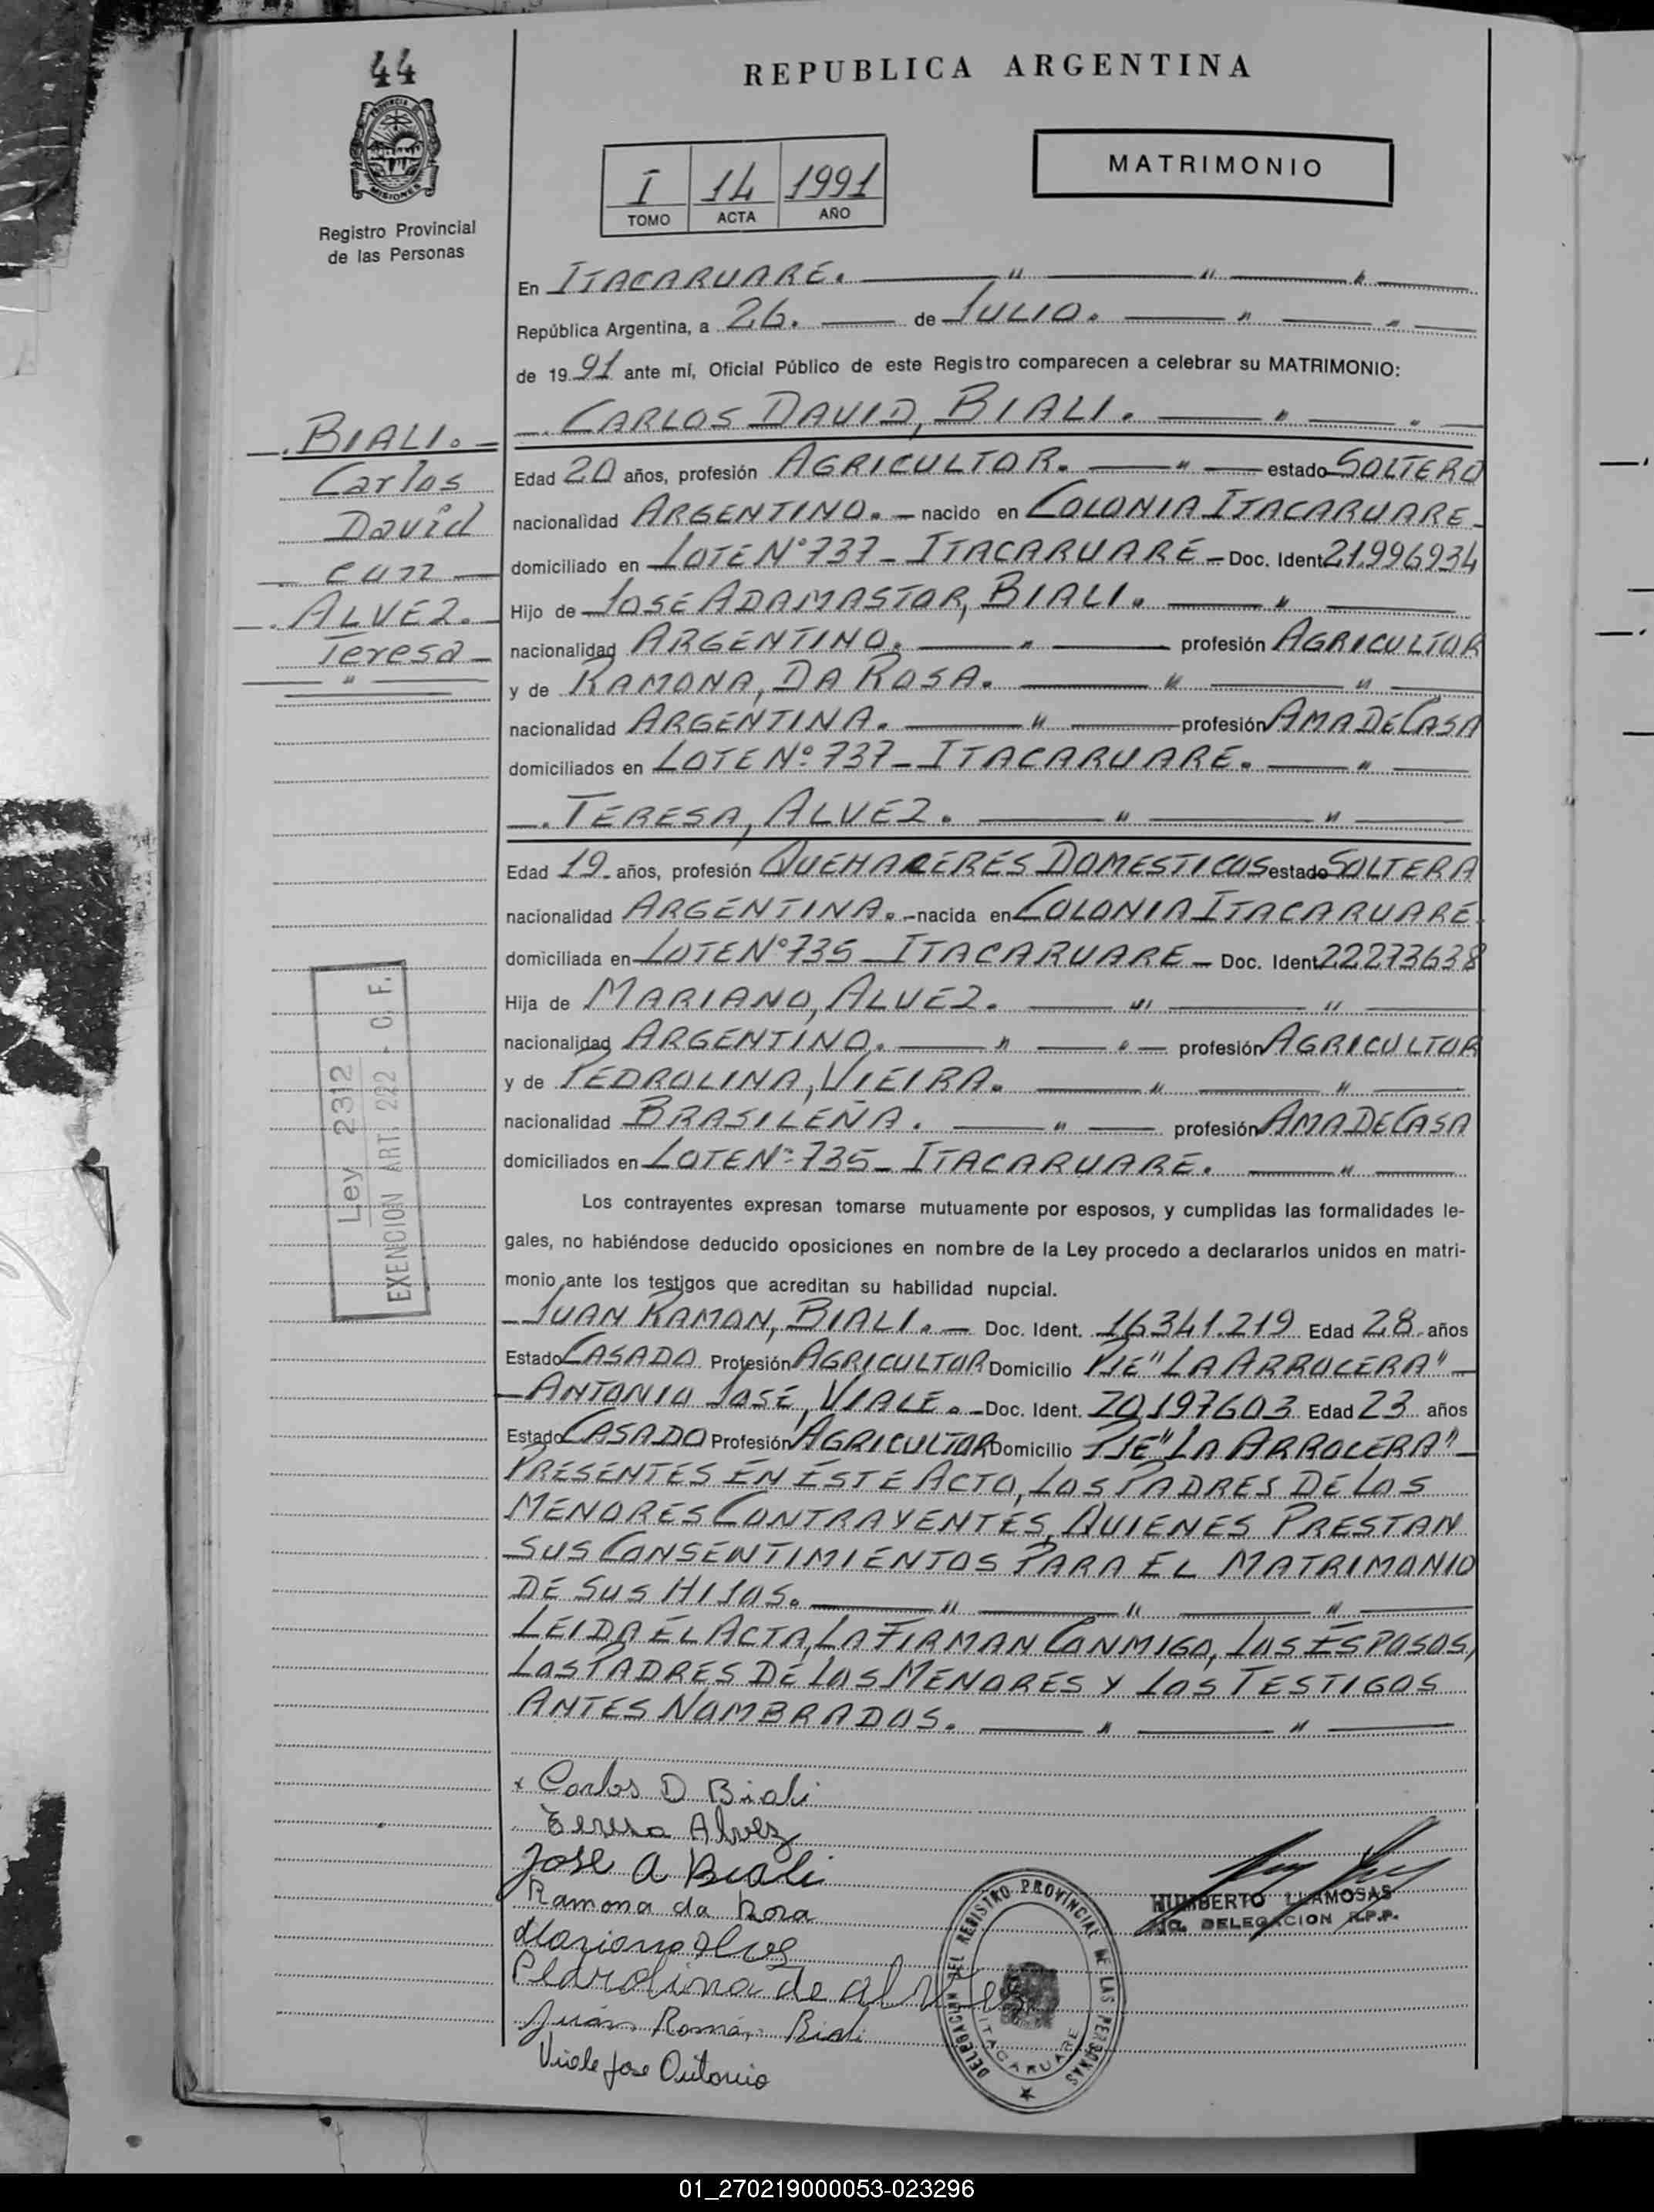 44
PROVINCIA DE
MISIONES
Registro Provincial
de las Personas
REPUBLICA ARGENTINA
I 14 1991
TOMO ACTA AÑO
MATRIMONIO
En ITACARUARÉ.
República Argentina, a 26. de JULIO.
de 1991 ante mí, Oficial Público de este Registro comparecen a celebrar su MATRIMONIO:
CARLOS DAVID, BIALI.
Edad 20 años, profesión AGRICULTOR. estado SOLTERO
nacionalidad ARGENTINO. nacido en COLONIA ITACARUARE
domiciliado en LOTE N° 737 - ITACARUARÉ - Doc. Ident 21.996934
Hijo de JOSÉ ADAMASTOR, BIALI.
nacionalidad ARGENTINO. profesión AGRICULTOR
y de RAMONA, DA ROSA.
nacionalidad ARGENTINA. profesión AMA DE CASA
domiciliados en LOTE Nº 737 - ITACARUARE.
TERESA, ALVEZ.
Edad 19 años, profesión QUEHACERES DOMESTICOS estado SOLTERA
nacionalidad ARGENTINA. nacida en COLONIA ITACARUARÉ
domiciliada en LOTE N° 735 - ITACARUARE - Doc. Ident 22273638
Hija de MARIANO, ALVEZ.
nacionalidad ARGENTINO. profesión AGRICULTOR
y de PEDROLINA, VIEIRA.
nacionalidad BRASILEÑA. profesión AMA DE CASA
domiciliados en LOTE Nº 735 - ITACARUARÉ.
Los contrayentes expresan tomarse mutuamente por esposos, y cumplidas las formalidades le-
gales, no habiéndose deducido oposiciones en nombre de la Ley procedo a declararlos unidos en matri-
monio ante los testigos que acreditan su habilidad nupcial.
JUAN RAMON, BIALI. - Doc. Ident. 16341.219 Edad 28 años
Estado CASADO Profesión AGRICULTOR Domicilio PJE "LA ARROCERA"
ANTONIO JOSÉ, VIALE. - Doc. Ident. 20197603 Edad 23 años
Estado CASADO Profesión AGRICULTOR Domicilio PJE "LA ARROCERA"
PRESENTES EN ÉSTE ACTO, LOS PADRES DE LOS
MENORES CONTRAYENTES, QUIENES PRESTAN
SUS CONSENTIMIENTOS PARA EL MATRIMONIO
DE SUS HIJOS.
LEIDA EL ACTA, LA FIRMAN CONMIGO, LOS ESPOSOS,
LOS PADRES DE LOS MENORES Y LOS TESTIGOS
ANTES NOMBRADOS.
BIALI.
Carlos
David
con
ALVEZ.
Teresa
Ley 2312
EXENCION ART. 222 - C. F.
x Carlos D Biali
Teresa Alvez
Jose A Biali
Ramona da Rosa
Mariano Alvez
Pedrolina de alvez
Juán Ramón Biali
Viale Jose Antonio
DELEGACION DEL REGISTRO PROVINCIAL DE LAS PERSONAS
ITACARUARE
HUMBERTO LLAMOSAS
DELEGACION R.P.P.
01_270219000053-023296